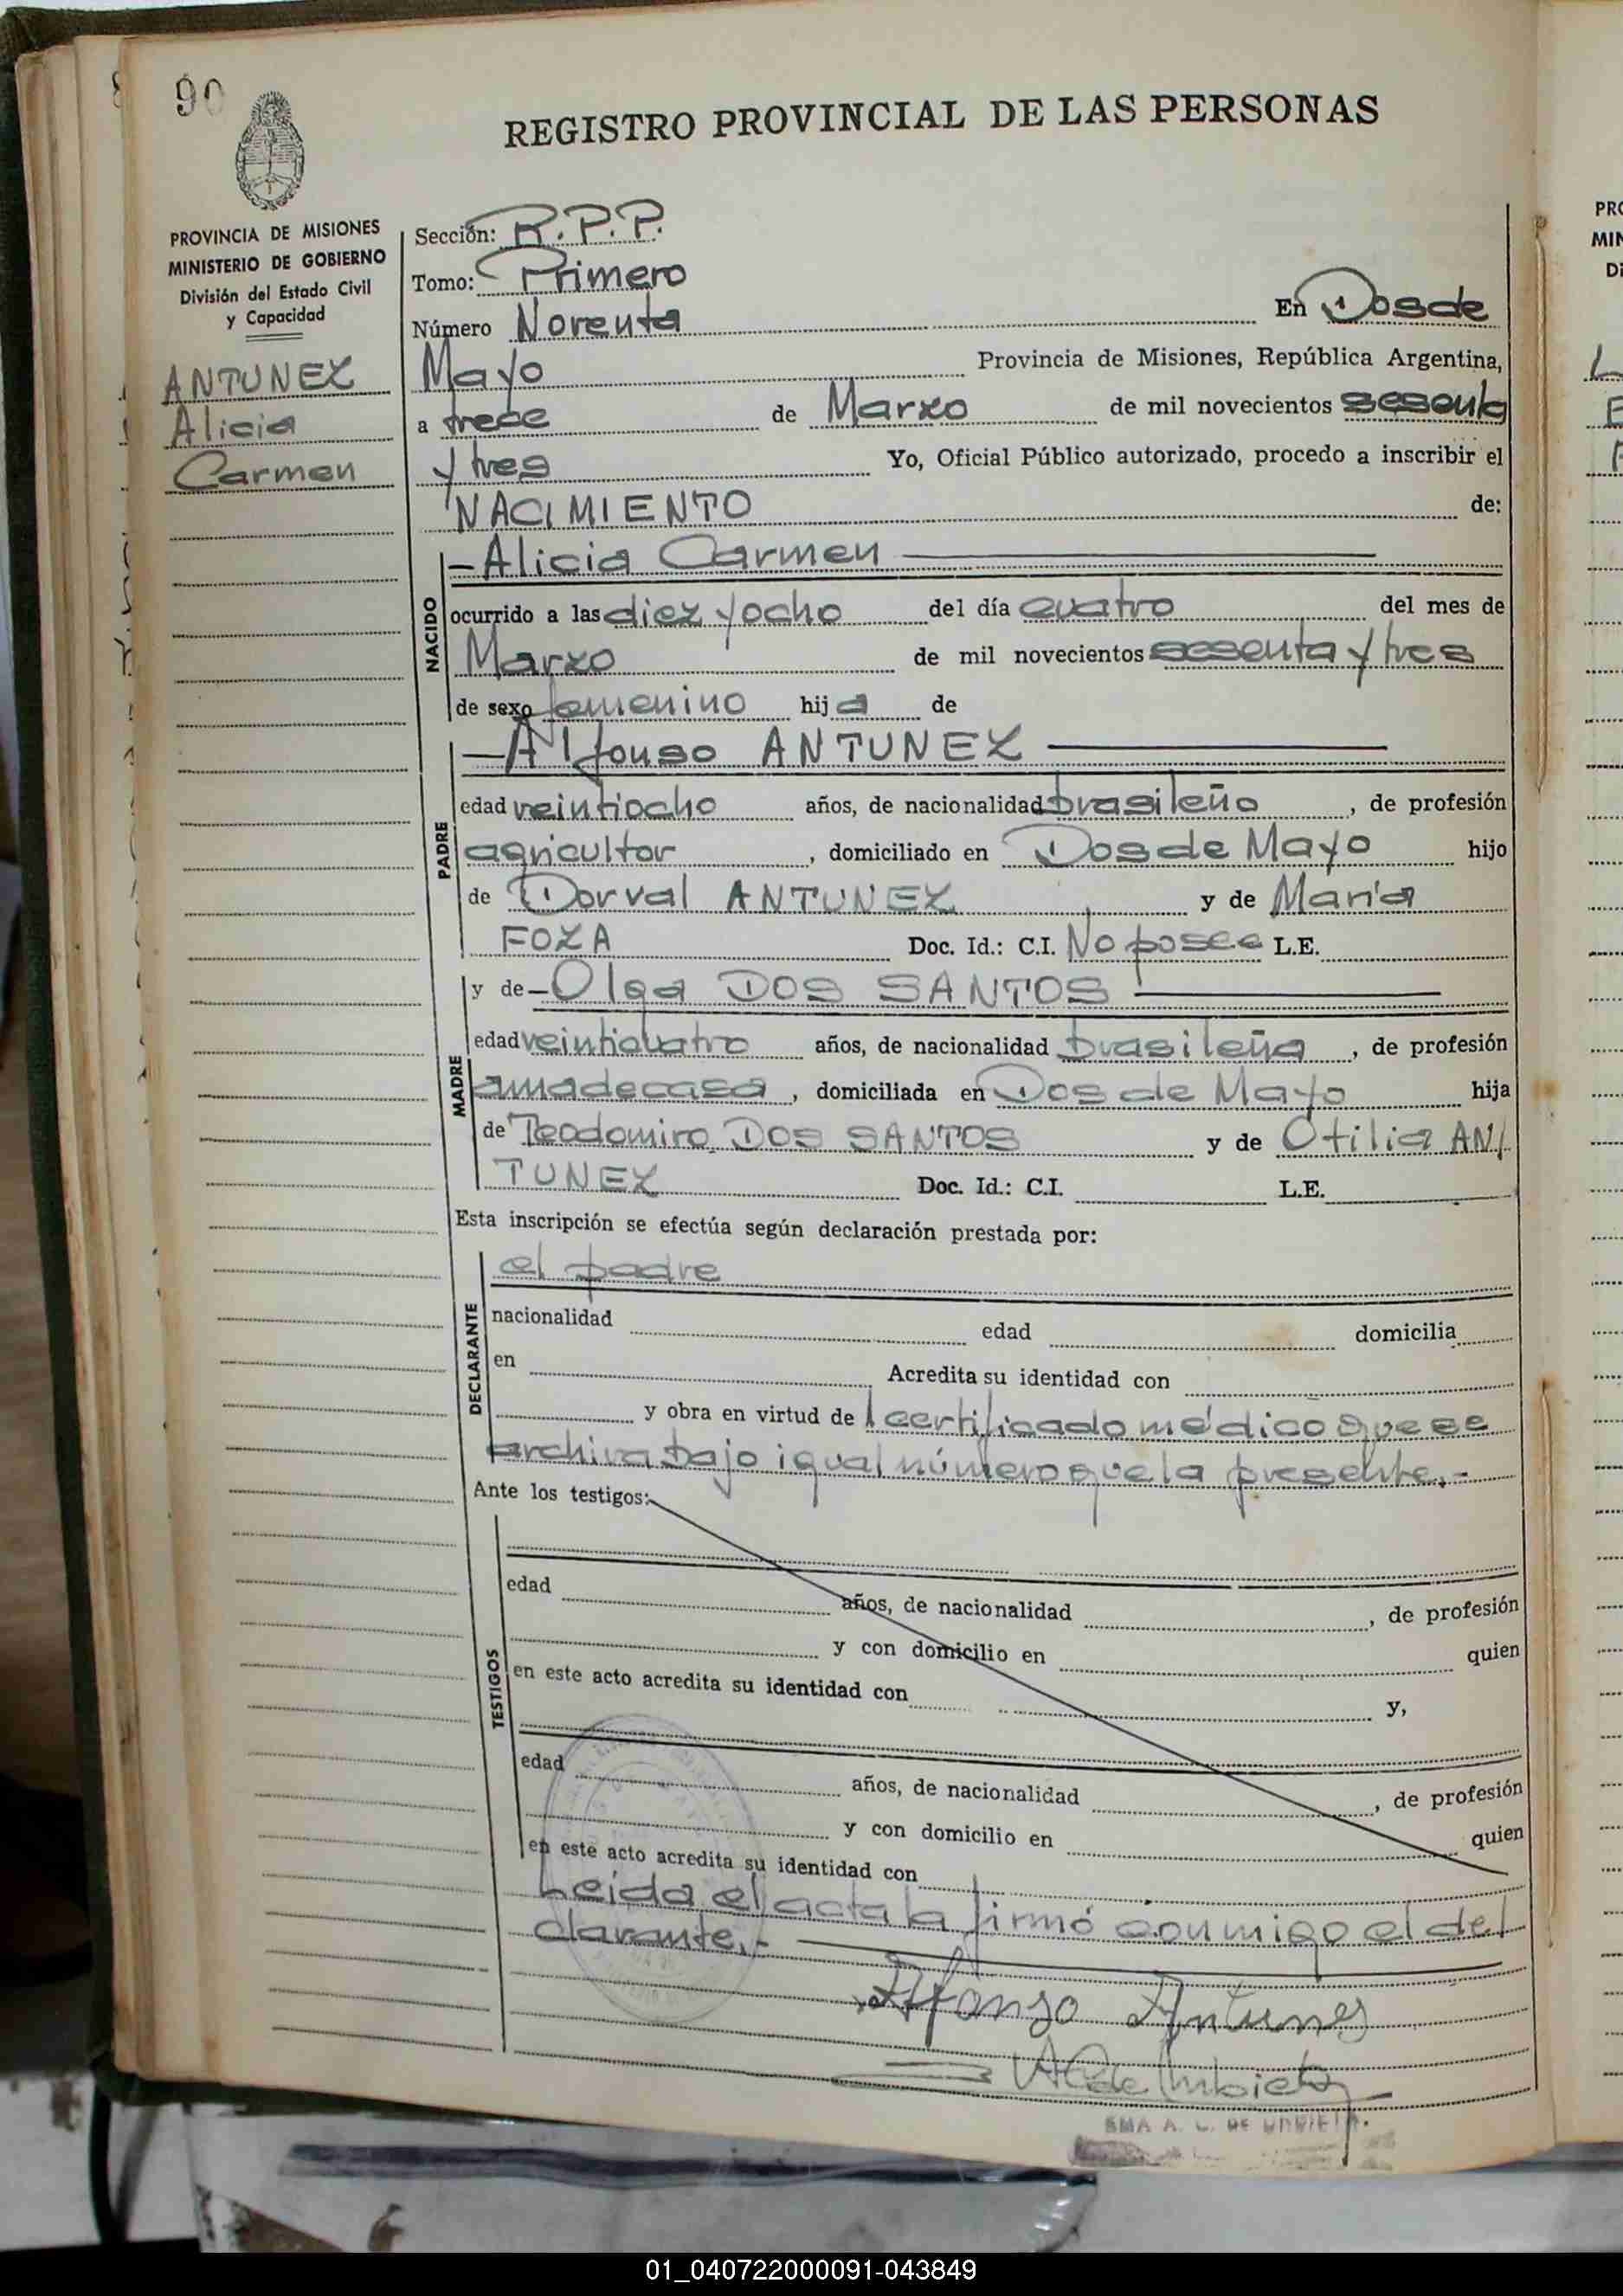 90
REGISTRO PROVINCIAL DE LAS PERSONAS
PROVINCIA DE MISIONES
MINISTERIO DE GOBIERNO
División del Estado Civil
y Capacidad
ANTUNEZ
Alicia
Carmen
Sección: R.P.P.
Tomo: Primero
Número Noventa En Dos de
Mayo Provincia de Misiones, República Argentina,
a trece de Marzo de mil novecientos sesenta
y tres Yo, Oficial Público autorizado, procedo a inscribir el
NACIMIENTO de:
NACIDO
-Alicia Carmen
ocurrido a las diez y ocho del día cuatro del mes de
Marzo de mil novecientos sesenta y tres
de sexo femenino hija de
PADRE
-Alfonso ANTUNEZ
edad veintiocho años, de nacionalidad brasileño, de profesión
agricultor, domiciliado en Dos de Mayo hijo
de Dorval ANTUNEZ y de María
FOZA Doc. Id.: C.I. No posee L.E.
MADRE
y de -Olga DOS SANTOS
edad veinticuatro años, de nacionalidad brasileña, de profesión
ama de casa, domiciliada en Dos de Mayo hija
de Teodomiro DOS SANTOS y de Otilia AN/
TUNEZ Doc. Id.: C.I. L.E.
Esta inscripción se efectúa según declaración prestada por:
DECLARANTE
el padre
nacionalidad edad domicilia
en Acredita su identidad con
y obra en virtud del certificado médico que se
archiva bajo igual número que la presente.-
Ante los testigos:
TESTIGOS
edad años, de nacionalidad, de profesión
y con domicilio en quien
en este acto acredita su identidad con y,
edad años, de nacionalidad, de profesión
y con domicilio en quien
en este acto acredita su identidad con
Leída el acta la firmó conmigo el de/
clarante.-
Alfonso Antunes
A C de Urbieta
EMA A. C. DE URBIETA
PRO
MIN
Di
01_040722000091-043849